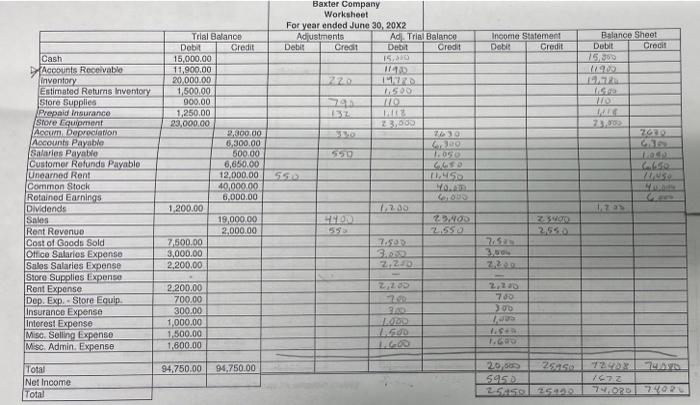 Baxter Company
Worksheet
For year ended June 30, 20X2
Trial Balance Adjustments Adj. Trial Balance Income Statement Balance Sheet
Debit Credit Debit Credit Debit Credit Debit Credit Debit Credit
Cash 15,000.00 15,000 15,000
Accounts Receivable 11,900.00 11900 11900
Inventory 20,000.00 220 19,780 19,780
Estimated Returns Inventory 1,500.00 1,500 1,500
Store Supplies 900.00 790 110 110
Prepaid Insurance 1,250.00 132 1,118 1,118
Store Equipment 23,000.00 23,000 23,000
Accum. Depreciation 2,300.00 330 2630 2630
Accounts Payable 6,300.00 6,300 6,300
Salaries Payable 500.00 550 1,050 1,050
Customer Refunds Payable 6,650.00 6,650 6650
Unearned Rent 12,000.00 550 11,450 11,450
Common Stock 40,000.00 40,000 40,000
Retained Earnings 6,000.00 6,000 6,000
Dividends 1,200.00 1,200 1,200
Sales 19,000.00 4400 23,400 23400
Rent Revenue 2,000.00 550 2,550 2,550
Cost of Goods Sold 7,500.00 7,500 7,500
Office Salaries Expense 3,000.00 3,000 3,000
Sales Salaries Expense 2,200.00 2,200 2,200
Store Supplies Expense — —
Rent Expense 2,200.00 2,200 2,200
Dep. Exp. - Store Equip. 700.00 700 700
Insurance Expense 300.00 300 300
Interest Expense 1,000.00 1,000 1,000
Misc. Selling Expense 1,500.00 1,500 1,500
Misc. Admin. Expense 1,600.00 1,600 1,600
Total 94,750.00 94,750.00 20,000 25950 72408 74080
Net Income 5950 1672
Total 25950 25950 74,080 74080